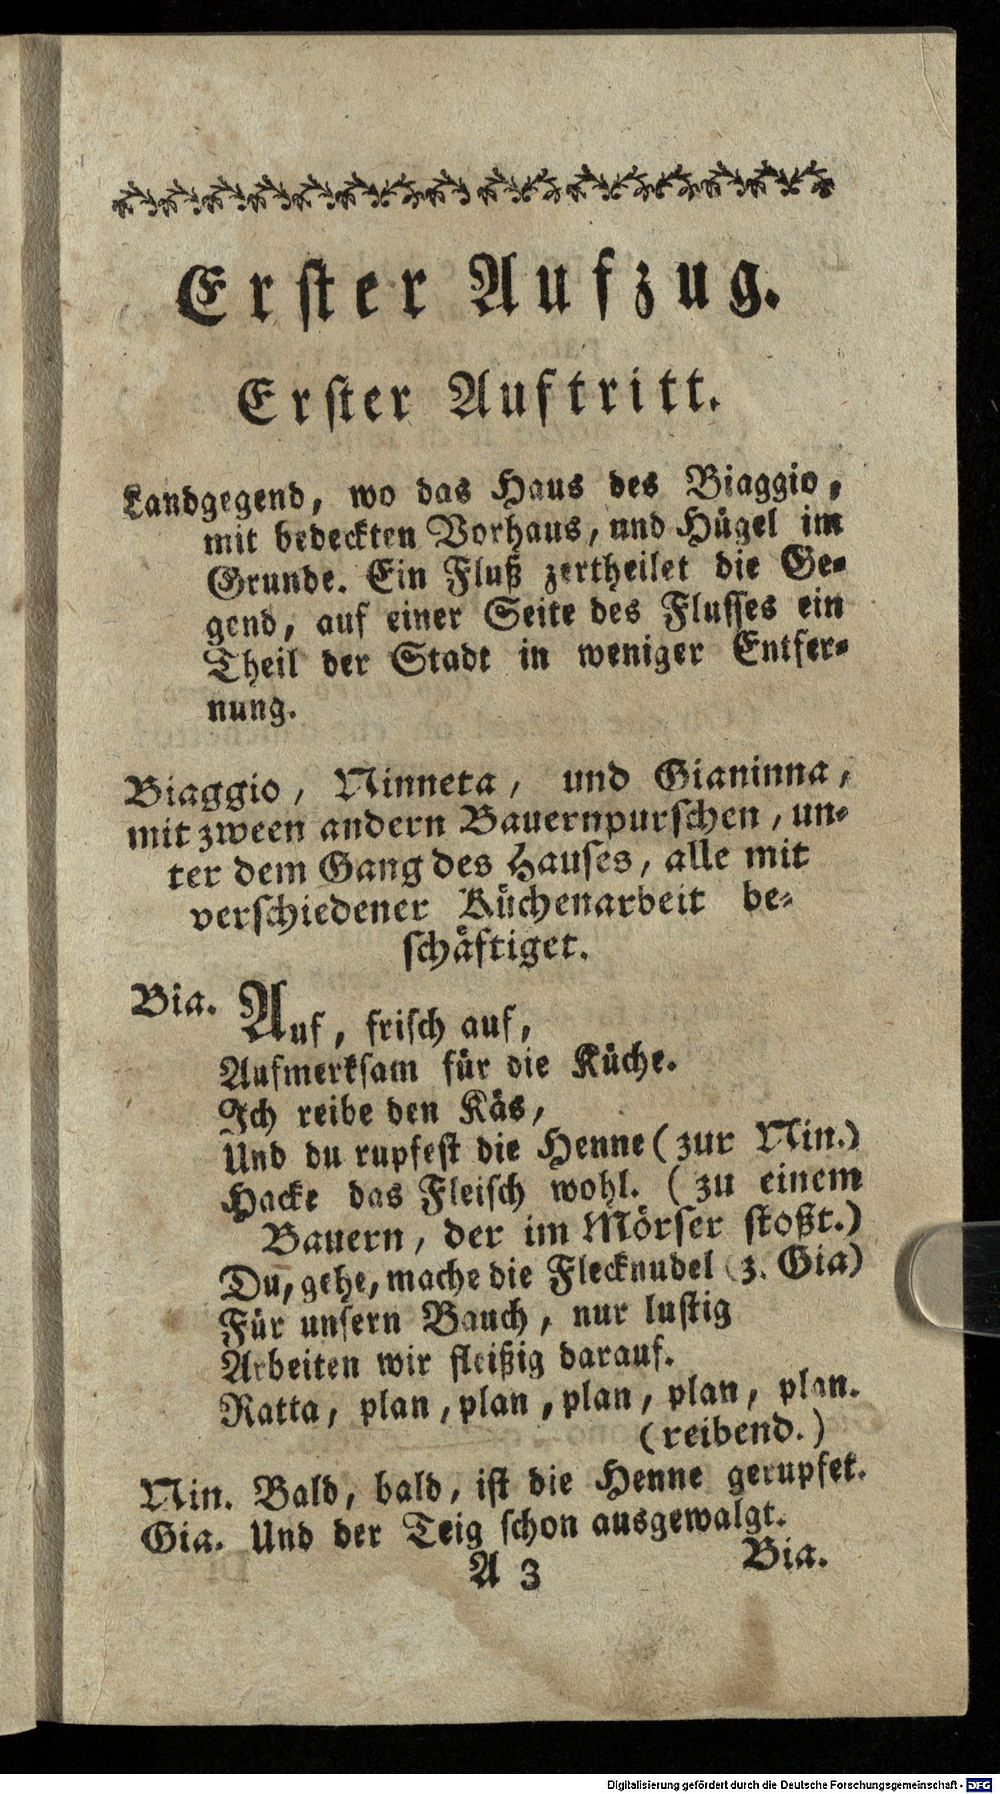 Erster Aufzug.
Erster Auftritt.
Landgegend, wo das Haus des Biaggio,
mit bedeckten Vorhaus, und Hügel im
Grunde. Ein Fluß zertheilet die Ge-
gend, auf einer Seite des Flusses ein
Theil der Stadt in weniger Entfer-
nung.
Biaggio, Ninneta, und Gianinna,
mit zween andern Bauernpurschen, un-
ter dem Gang des Hauses, alle mit
verschiedener Küchenarbeit be-
schäftiget.
Bia. Auf, frisch auf,
Aufmerksam für die Küche.
Ich reibe den Käs,
Und du rupfest die Henne (zur Nin.)
Hacke das Fleisch wohl. (zu einem
Bauern, der im Mörser stoßt.)
Du, gehe, mache die Flecknudel (z. Gia)
Für unsern Bauch, nur lustig
Arbeiten wir fleißig darauf.
Ratta, plan, plan, plan, plan, plan.
(reibend.)
Nin. Bald, bald, ist die Henne gerupfet.
Gia. Und der Teig schon ausgewalgt.
A 3 Bia.
Digitalisierung gefördert durch die Deutsche Forschungsgemeinschaft - DFG